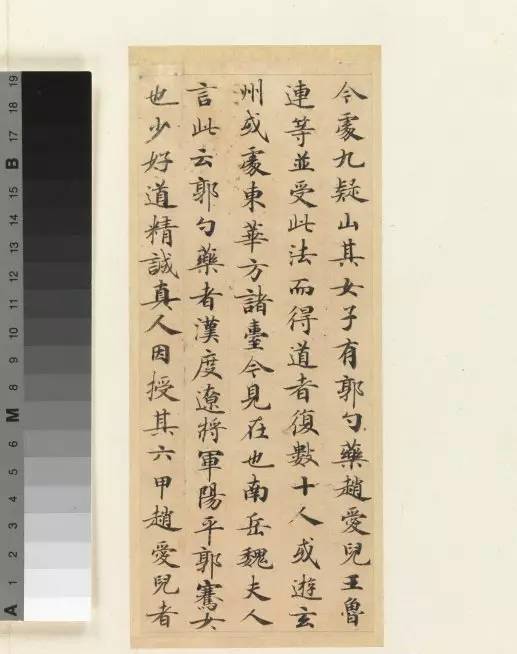 今處九疑山其女子有郭勺藥趙愛兒王魯
連等並受此法而得道者復數十人或遊玄
州或處東華方諸臺今見在也南岳魏夫人
言此云郭勺藥者漢度遼將軍陽平郭騫女
也少好道精誠真人因授其六甲趙愛兒者
A 1 2 3 4 5 6 M 8 9 10 11 12 13 14 15 B 17 18 19